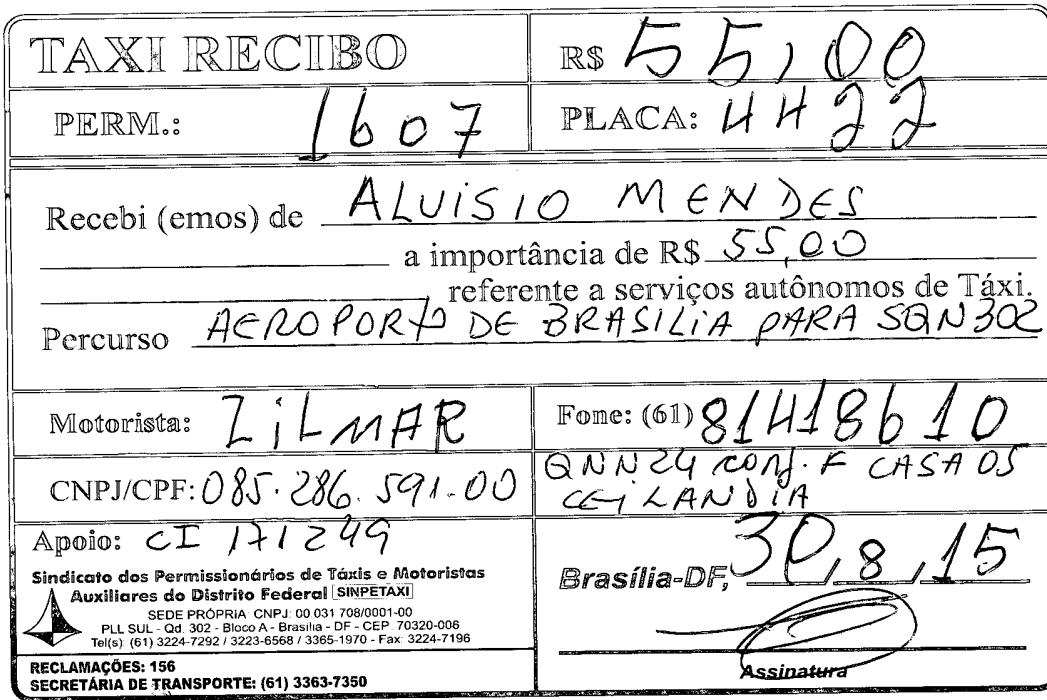 TAXI RECIBO R$ 55,00
PERM.: 1607 PLACA: 4422
Recebi (emos) de ALUISIO MENDES
a importância de R$ 55,00
referente a serviços autônomos de Táxi.
Percurso AEROPORTO DE BRASILIA PARA SQN302
Motorista: ZILMAR Fone: (61) 81418610
CNPJ/CPF: 085.286.591.00 QNN24 CONJ. F CASA 05
CEILANDIA
Apoio: CI 171249
Brasília-DF, 30/8/15
Sindicato dos Permissionários de Táxis e Motoristas
Auxiliares do Distrito Federal SINPETAXI
SEDE PRÓPRIA CNPJ: 00 031 708/0001-00
PLL SUL - Qd. 302 - Bloco A - Brasília - DF - CEP. 70320-006
Tel(s): (61) 3224-7292 / 3223-6568 / 3365-1970 - Fax: 3224-7196
Assinatura
RECLAMAÇÕES: 156
SECRETÁRIA DE TRANSPORTE: (61) 3363-7350